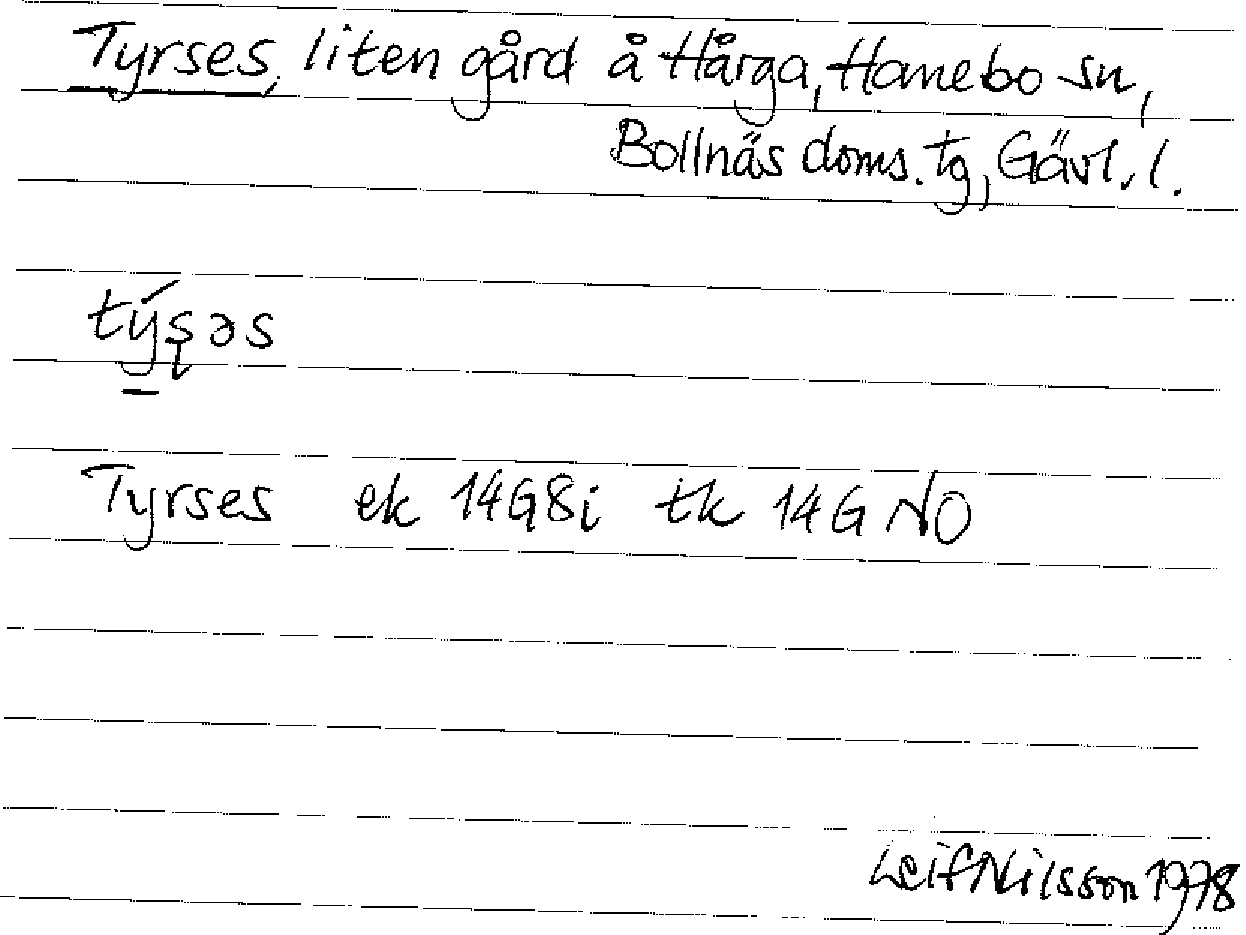 Tyrses, liten gård å Hårga, Hanebo sn,
Bollnäs doms. tg, Gävl. l.
tý̱ʂəs
Tyrses ek 14G8i tk 14G NO
Leif Nilsson 1978